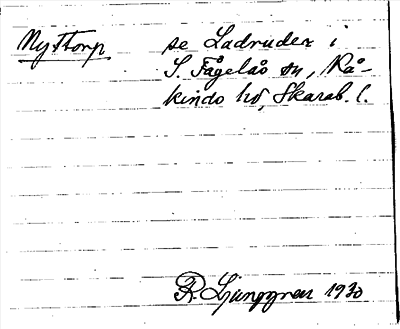 Nyttorp se Ladruder i
S. Fågelås sn, Kå-
kinds hd, Skarab. l.
R. Ljunggren 1930